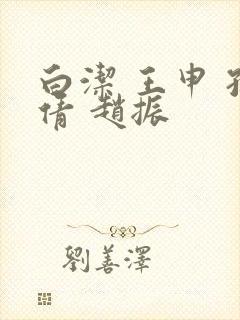 白潔 王申 孫
倩 趙振
劉善澤